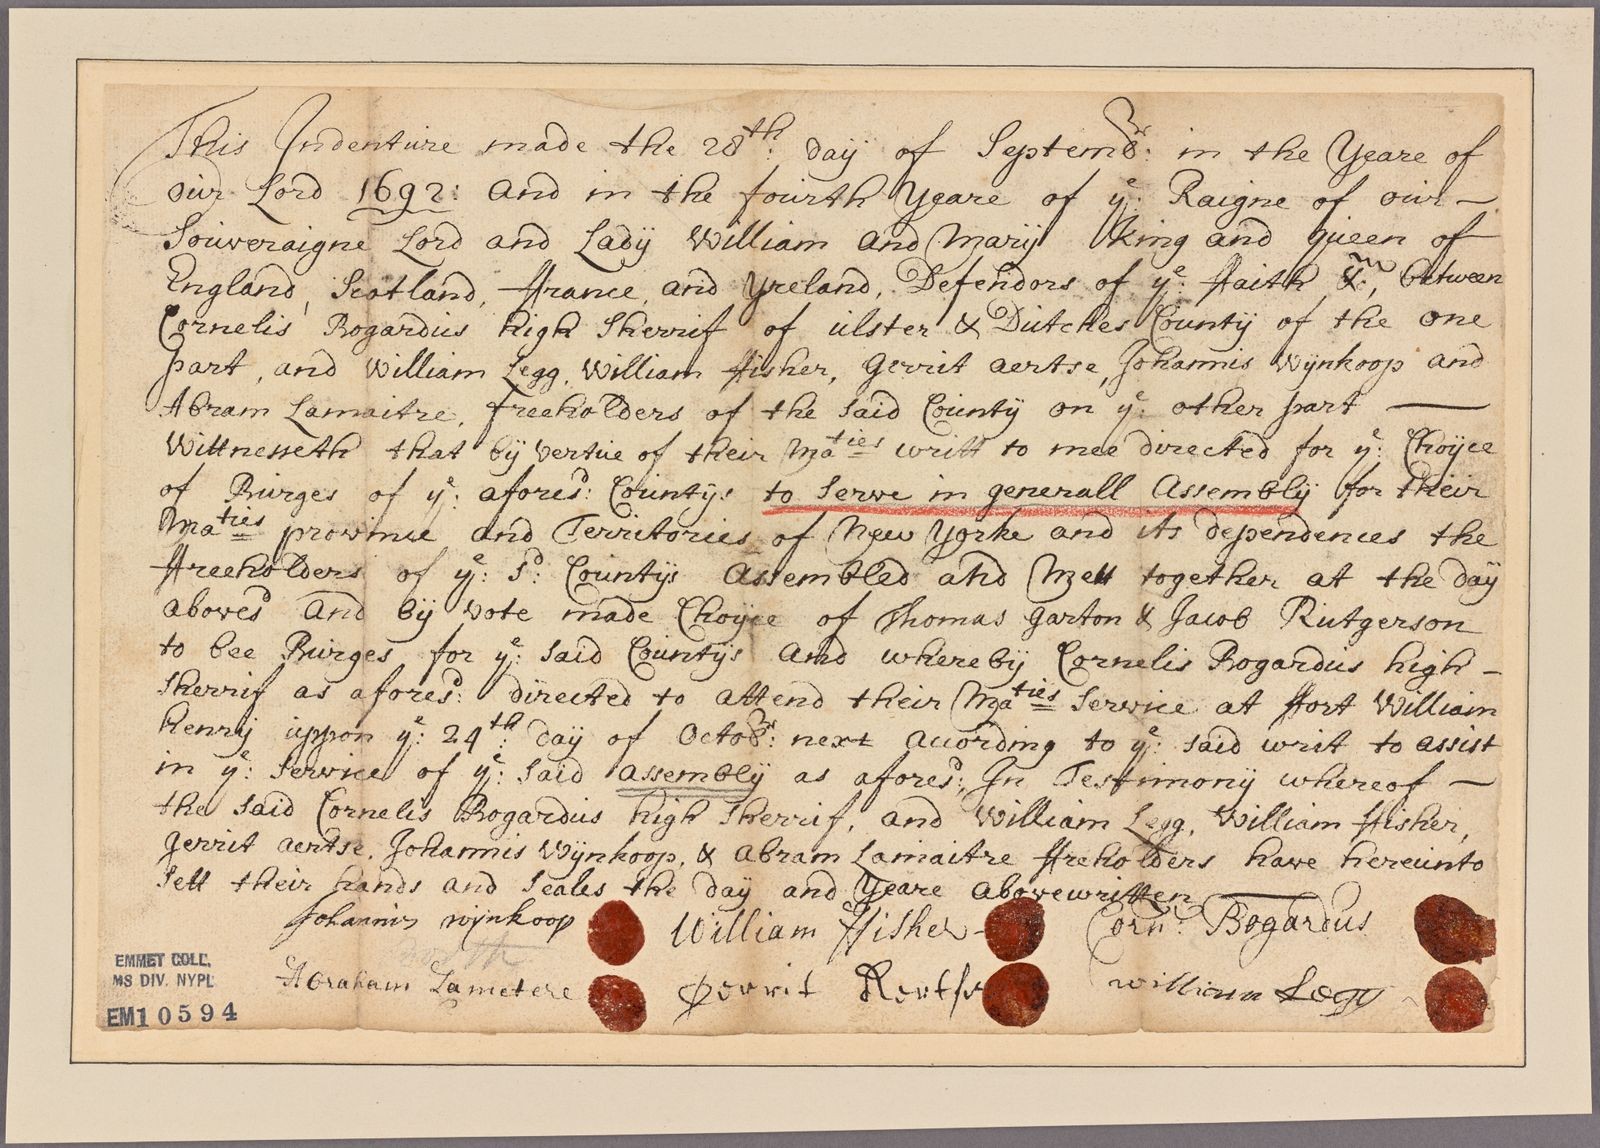 This Indenture made the 28th: day of Septembr: in the Yeare of
our Lord 1692: and in the fourth Yeare of ye: Raigne of our –
Souveraigne Lord and Ladÿ William and Marÿ King and Queen of
England, Scotland, ffrance, and Yreland, Defendors of ye: ffaith &c, between
Cornelis Bogardus high Sherrif of ulster & Dutches Countÿ of the one
part, and William Legg, William ffisher, Gerrit aertse, Johannis Wÿnkoop and
Abram Lamaitre, freeholders of the said Countÿ on ye: other part —
Wittnesseth that bÿ vertue of their Maties writt to mee directed for ye: Choÿce
of Burges of ye: aforesd: Countÿs to Serve in generall Assemblÿ for their
Maties province and Territories of New Yorke and its dependencies the
ffreeholders of ye: sd: Countÿs Assembled and Mett together at the daÿ
abovesd and bÿ vote made Choÿce of Thomas Garton & Jacob Rutgerson
to bee Burges for ye: said Countÿs and wherebÿ Cornelis Bogardus high –
Sherrif as aforesd: directed to attend their Maties Service at ffort William
henrÿ uppon ye: 24th: daÿ of Octobr: next according to ye: said writ to assist
in ye: Service of ye: said assemblÿ as aforesd: In Testimonÿ whereof –
the said Cornelis Bogardus high Sherrif, and William Legg, William ffisher,
Gerrit aertse, Johannis Wÿnkoop, & abram Lamaitre ffreholders have hereunto
Sett their hands and Seales the daÿ and Yeare abovewritten —
Johannis wÿnkoop William ffisher Corn: Bogardus
Abraham Lametere Gerrit Aertse william Legg
EMMET COLL.
MS DIV. NYPL
EM10594